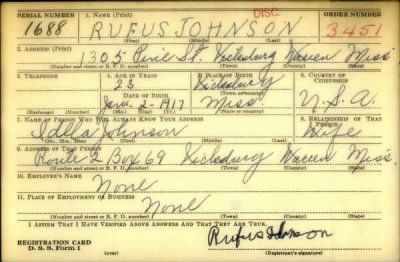 SERIAL NUMBER 1. NAME (Print) DISC. ORDER NUMBER
1688 RUFUS JOHNSON 3451
2. ADDRESS (Print)
1305 Pine St. Vicksburg Warren Miss.
(Number and street or R. F. D. number) (Town) (County) (State)
3. TELEPHONE 4. AGE IN YEARS 5. PLACE OF BIRTH 6. COUNTRY OF CITIZENSHIP
23 Vicksburg
DATE OF BIRTH
Jan. 2-1917 Miss U.S.A.
(Exchange) (Number) (Mo.) (Day) (Yr.) (Town or county) (State or country)
7. NAME OF PERSON WHO WILL ALWAYS KNOW YOUR ADDRESS 8. RELATIONSHIP OF THAT PERSON
Idella Johnson Wife
(Mr., Mrs., Miss) (First) (Middle) (Last)
9. ADDRESS OF THAT PERSON
Route 2 Box 69 Vicksburg Warren Miss.
(Number and street or R. F. D. number) (Town) (County) (State)
10. EMPLOYER'S NAME
None
11. PLACE OF EMPLOYMENT OR BUSINESS
None
(Number and street or R. F. D. number) (Town) (County) (State)
I AFFIRM THAT I HAVE VERIFIED ABOVE ANSWERS AND THAT THEY ARE TRUE.
Rufus Johnson
REGISTRATION CARD
D. S. S. Form 1 (Registrant's signature)